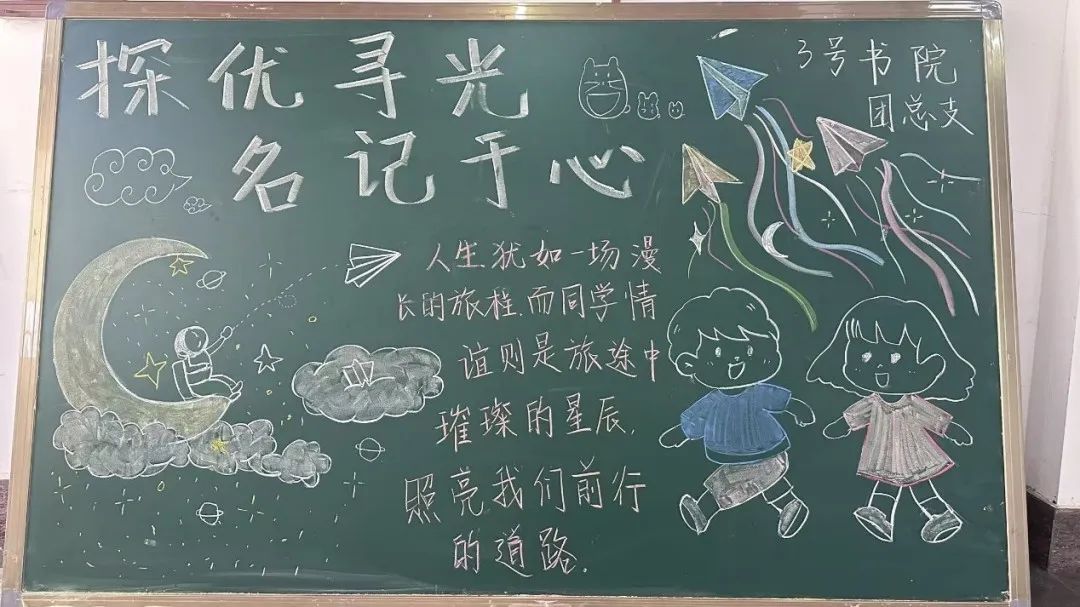 探优寻光
名记于心
3号书院
团总支
人生犹如一场漫
长的旅程,而同学情
谊则是旅途中
璀璨的星辰,
照亮我们前行
的道路.